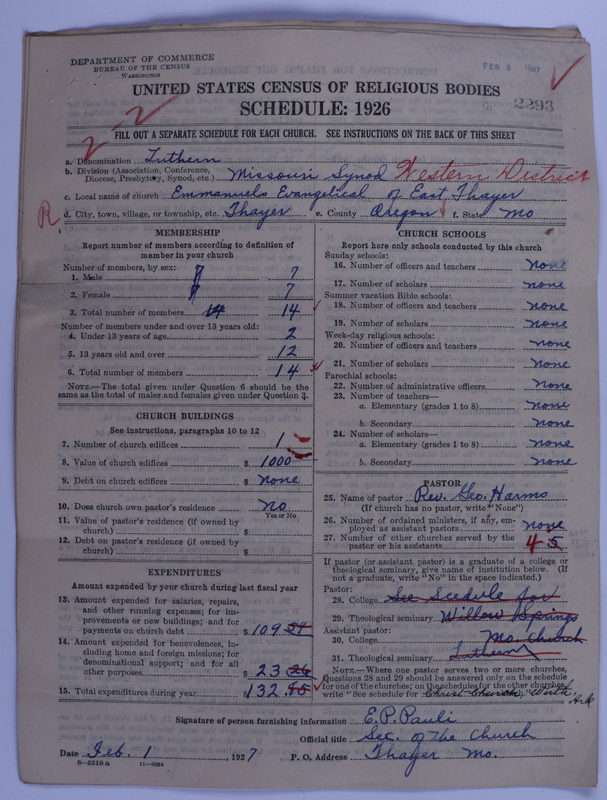 DEPARTMENT OF COMMERCE
BUREAU OF THE CENSUS
WASHINGTON
FEB 3 1927
UNITED STATES CENSUS OF RELIGIOUS BODIES
SCHEDULE: 1926
2293
2-2
FILL OUT A SEPARATE SCHEDULE FOR EACH CHURCH. SEE INSTRUCTIONS ON THE BACK OF THIS SHEET
a. Denomination Luthern
b. Division (Association, Conference, Diocese, Presbytery, Synod, etc.) Missouri Synod Western District
c. Local name of church Emmanuels Evangelical of East Thayer
R d. City, town, village, or township, etc. Thayer e. County Oregon f. State Mo
MEMBERSHIP
Report number of members according to definition of
member in your church
Number of members, by sex:
1. Male 7 7
2. Female 7 7
3. Total number of members 14 14
Number of members under and over 13 years old:
4. Under 13 years of age 2
5. 13 years old and over 12
6. Total number of members 14
NOTE.—The total given under Question 6 should be the
same as the total of males and females given under Question 3.
CHURCH BUILDINGS
See instructions, paragraphs 10 to 12
7. Number of church edifices 1
8. Value of church edifices $ 1000
9. Debt on church edifices $ none
10. Does church own pastor's residence no
Yes or No
11. Value of pastor's residence (if owned by
church) $
12. Debt on pastor's residence (if owned by
church) $
EXPENDITURES
Amount expended by your church during last fiscal year
13. Amount expended for salaries, repairs,
and other running expenses; for im-
provements or new buildings; and for
payments on church debt $ 109
14. Amount expended for benevolences, in-
cluding home and foreign missions; for
denominational support; and for all
other purposes $ 23
15. Total expenditures during year $ 132
CHURCH SCHOOLS
Report here only schools conducted by this church
Sunday schools:
16. Number of officers and teachers none
17. Number of scholars none
Summer vacation Bible schools:
18. Number of officers and teachers none
19. Number of scholars none
Week-day religious schools:
20. Number of officers and teachers none
21. Number of scholars none
Parochial schools:
22. Number of administrative officers none
23. Number of teachers—
a. Elementary (grades 1 to 8) none
b. Secondary none
24. Number of scholars—
a. Elementary (grades 1 to 8) none
b. Secondary none
PASTOR
25. Name of pastor Rev. Geo. Harms
(If church has no pastor, write "None")
26. Number of ordained ministers, if any, em-
ployed as assistant pastors none
27. Number of other churches served by the
pastor or his assistants 4 5
If pastor (or assistant pastor) is a graduate of a college or
theological seminary, give name of institution below. (If
not a graduate, write "No" in the space indicated.)
Pastor:
28. College See Scedule for
29. Theological seminary Willow Springs
Assistant pastor:
30. College Mo. Church
31. Theological seminary Luthern
NOTE.—Where one pastor serves two or more churches,
Questions 28 and 29 should be answered only on the schedule
for one of the churches; on the schedules for the other churches,
write "See schedule for Christ Church, Ark
Signature of person furnishing information E. P. Pauli
Official title Sec. of the Church
Date Feb. 1, 1927 P. O. Address Thayer Mo.
6—5518a 11—9084